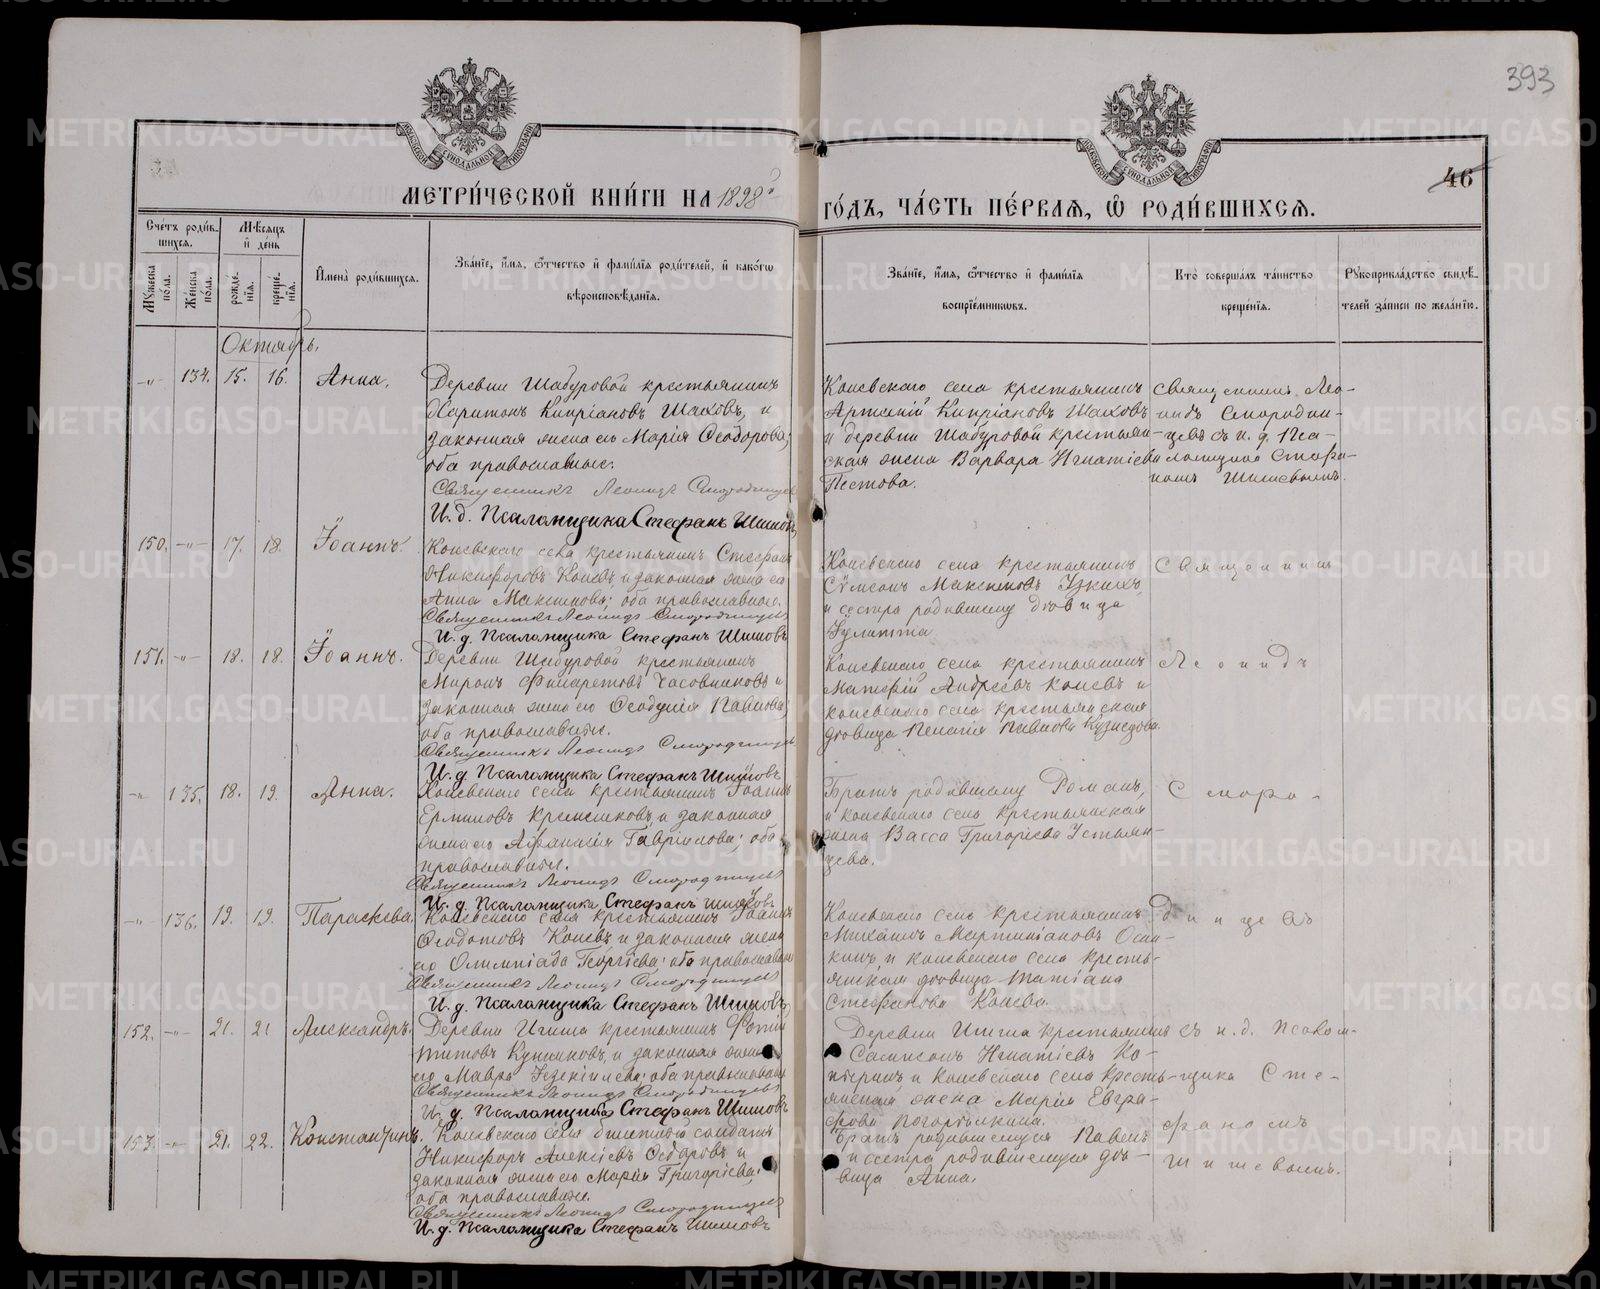 393
46
МЕТРИ́ЧЕСКОЙ КНИ́ГИ НА 1898й
ГО́ДЪ, ЧА́СТЬ ПЕ́РВАЯ, Ѡ РОДИ́ВШИХСЯ.
Сче́тъ роди́в-
шихся.
Мꙋжеска по́ла.
Же́нска по́ла.
Мѣ́сяцъ
и҆ де́нь
рожде́нїѧ.
креще́нїѧ.
И҆мена̀ роди́вшихся.
Зва́нїе, и҆́мѧ, ѻ҆́тчество и҆ фами́лїѧ роди́телей, и҆ како́гѡ
вѣроисповѣ́данїѧ.
Зва́нїе, и҆́мѧ, ѻ҆́тчество и҆ фами́лїѧ
воспрїе́мникѡвъ.
Кто̀ соверша́лъ та́инство
креще́нїѧ.
Рꙋкоприкла́дство свидѣ́-
телей за́писи по жела́нїю.
Октябрь.
-„- 134. 15. 16. Анна.
Деревни Шабуровой крестьянинъ
Харитонъ Кипріановъ Шаховъ, и
законная жена его Марія Ѳеодорова;
оба православные.
Священникъ Леонидъ Смородинцевъ
И. д. Псаломщика Стефанъ Шишовъ
Коневскаго села крестьянинъ
Артемій Кипріановъ Шаховъ
и деревни Шабуровой крестьян-
ская жена Варвара Игнатіева
Пестова.
Священникъ Лео-
нидъ Смородин-
цевъ съ и. д. Пса-
ломщика Стефа-
номъ Шишевымъ.
150. -„- 17. 18. Іоаннъ.
Коневскаго села крестьянинъ Стефанъ
Никифоровъ Коневъ и законная жена его
Анна Максимова; оба православные.
Священникъ Леонидъ Смородинцевъ
И. д. Псаломщика Стефанъ Шишовъ
Коневскаго села крестьянинъ
Сѵмеонъ Максимовъ Узкихъ,
и сестра родившему дѣвица
Іулитта
Священникъ
151. -„- 18. 18. Іоаннъ.
Деревни Шабуровой крестьянинъ
Миронъ Филаретовъ Часовниковъ и
законная жена его Ѳеодулія Павлова;
оба православные.
Священникъ Леонидъ Смородинцевъ
И. д. Псаломщика Стефанъ Шишовъ
Коневскаго села крестьянинъ
Матвей Андреевъ Коневъ и
коневскаго села крестьянская
дѣвица Пелагія Павлова Кузнецова.
Леонидъ
-„- 135. 18. 19. Анна.
Коневскаго села крестьянинъ Іоаннъ
Ермиловъ и законная
жена его Аѳанасія Гавріилова; оба
православные.
Священникъ Леонидъ Смородинцевъ
И. д. Псаломщика Стефанъ Шишовъ
Братъ родившему Романъ,
и коневскаго села крестьянская
жена Васса Григоріева Устьян-
цева.
Сморо-
-„- 136. 19. 19. Параскева.
Коневскаго села крестьянинъ Іоаннъ
Ѳеодотовъ Коневъ и законная жена
его Олимпіада Георгіева; оба православные
Священникъ Леонидъ Смородинцевъ
И. д. Псаломщика Стефанъ Шишовъ
Коневскаго села крестьянинъ
Михаилъ Мартиніановъ Оси-
кинъ и коневскаго села кресть-
янская дѣвица Татіана
Стефанова Конева.
динцевъ
152. -„- 21. 21 Александръ.
Деревни Игиша крестьянинъ
Титовъ и законная жена
его Мавра Іезекіилева; оба православные
Священникъ Леонидъ Смородинцевъ
И. д. Псаломщика Стефанъ Шишовъ
Деревни Игиша крестьянинъ
Сампсонъ Игнатіевъ Ко-
и Коневскаго села кресть-
янская жена Марія Евгра-
фова
съ и. д. Псалом-
щика Сте-
фаномъ
153. -„- 21. 22. Константинъ.
Коневскаго села билетный солдатъ
Никифоръ Алексіевъ и
законная жена его Марія Григоріева;
оба православные.
Священникъ Леонидъ Смородинцевъ
И. д. Псаломщика Стефанъ Шишовъ
Братъ родившемуся Павелъ
и сестра родившемуся дѣ-
вица Анна.
Шишевымъ.